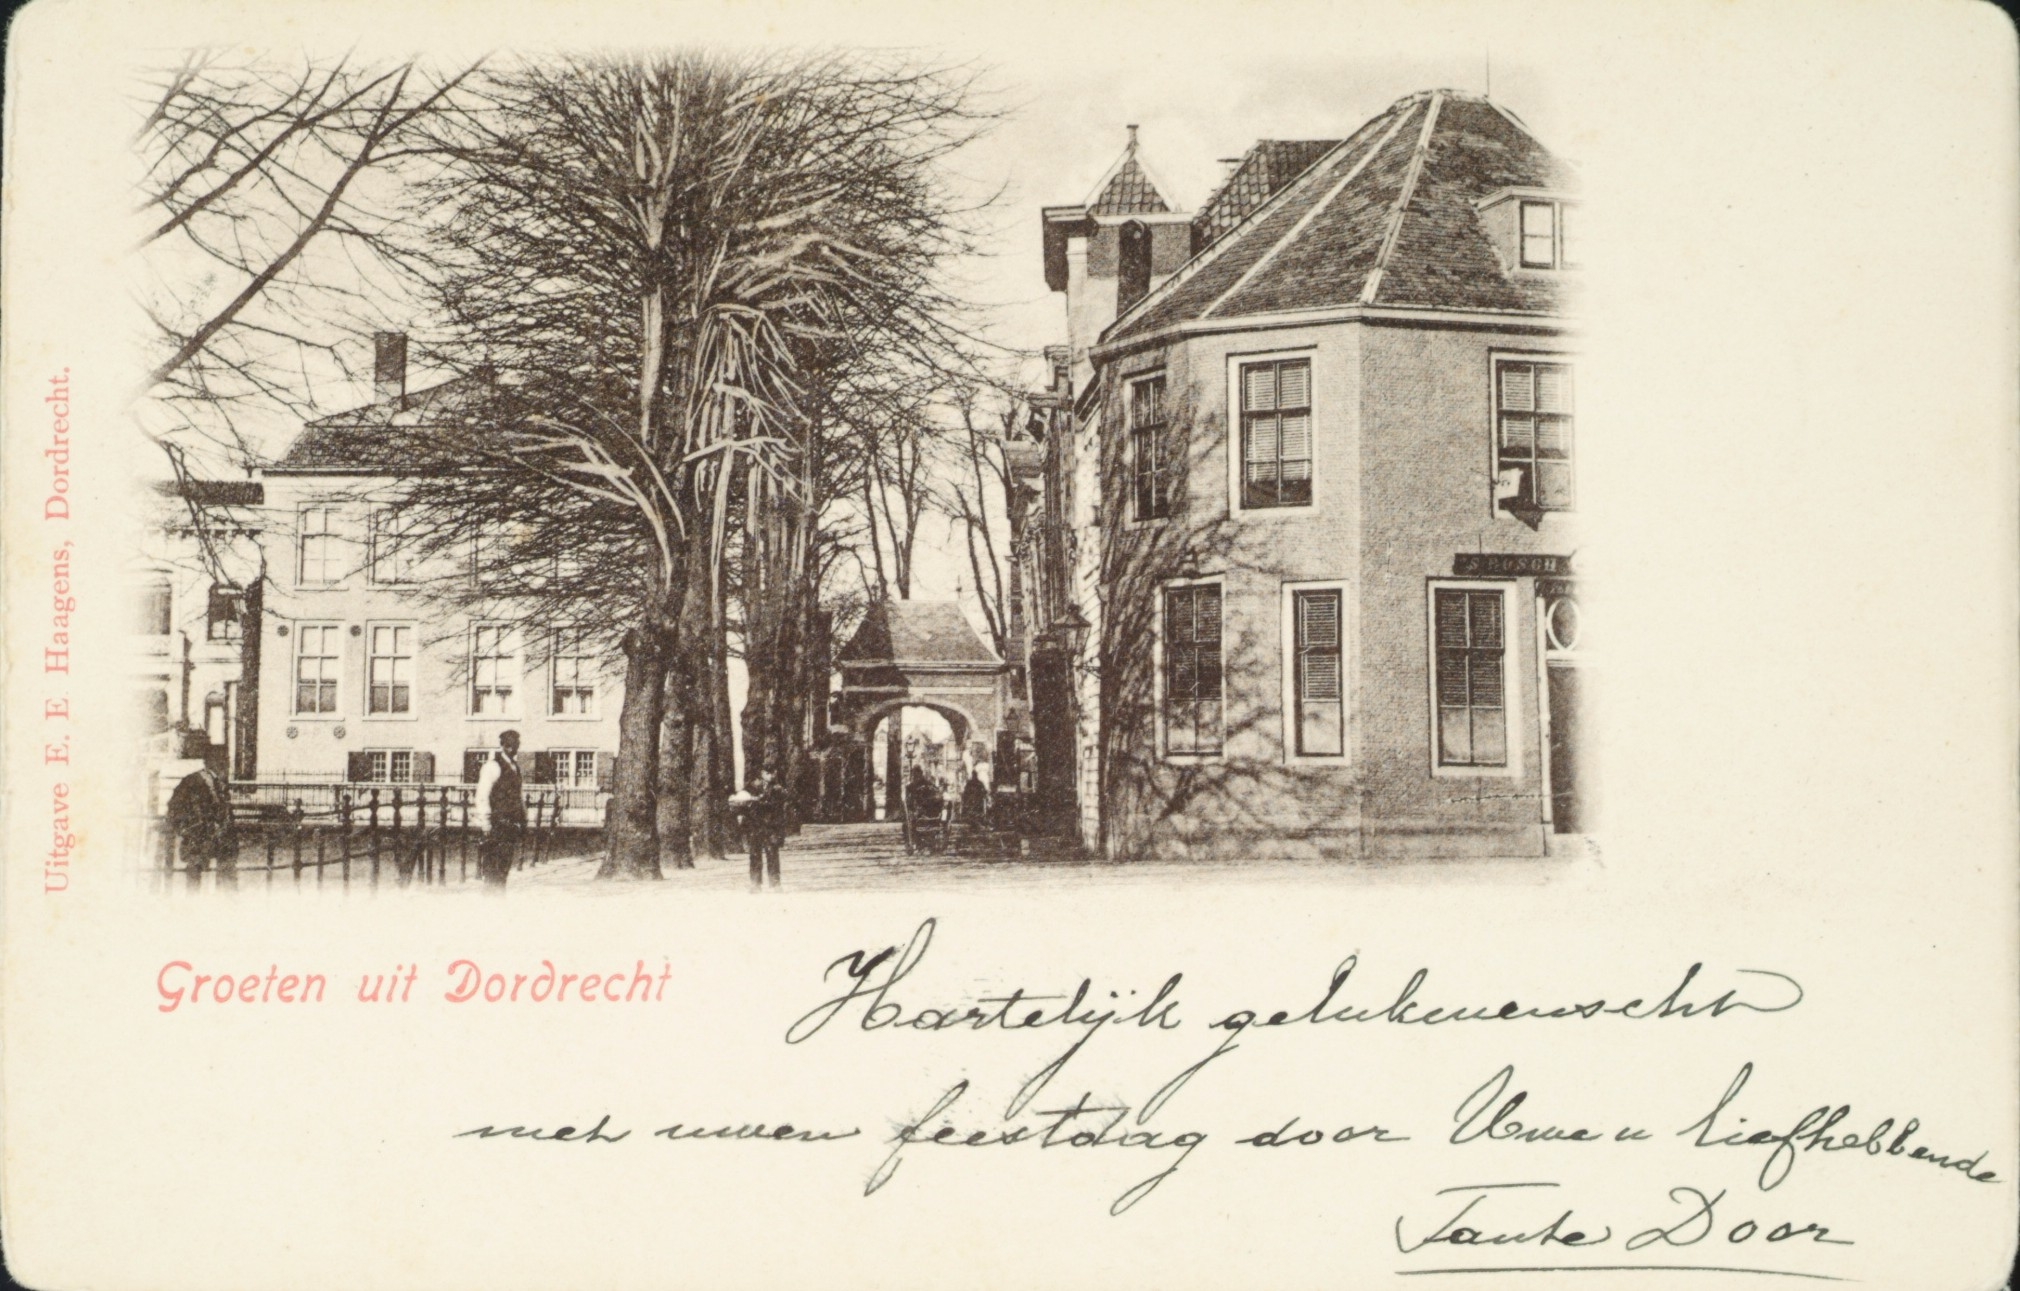 Uitgave E. E Haagens, Dordrecht.
'S BOSCH
Groeten uit Dordrecht
Hartelijk gelukwenscht
met uwen feestdag door Uwe u liefhebbende
Tante Door